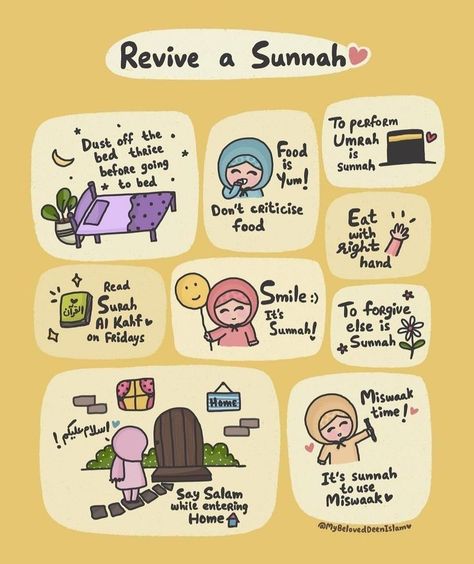 Revive a Sunnah
Dust off the
bed thrice
before going
to bed
Food
is
Yum!
Don't criticise
food
To perform
Umrah
is
Sunnah
Eat
with
right
hand
القرآن
Read
Surah
Al Kahf
on Fridays
Smile :)
It's
Sunnah!
To forgive
else is
Sunnah
اسلام عليكم!
Home
Say Salam
while entering
Home
Miswaak
time!
It's sunnah
to use
Miswaak
@MyBelovedDeenIslam